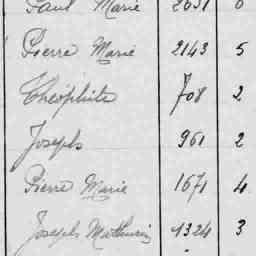 Paul Marie 2031 6
Pierre Marie 2143 5
Théophile 708 2
Joseph 961 2
Pierre Marie 1671 4
Joseph Mathurin 1324 3